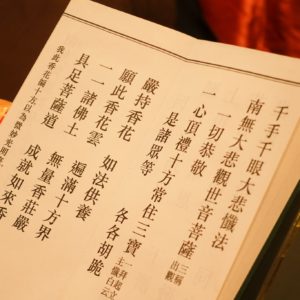 千手千眼大悲懺法
南無大悲觀世音菩薩 三稱
一切恭敬
一心頂禮十方常住三寶
是諸眾等 各各胡跪
嚴持香花 如法供養
願此香花雲 遍滿十方界
一一諸佛土 無量香莊嚴
具足菩薩道 成就如來香
我此香花徧十方以為微妙光明